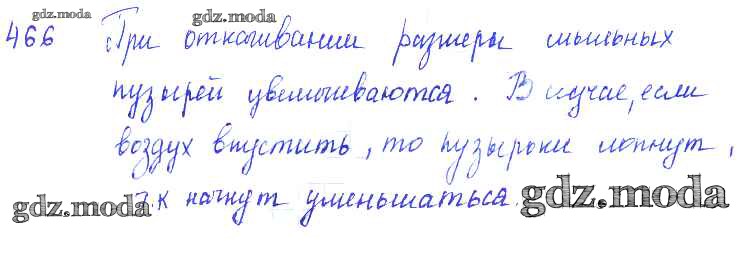 gdz.moda
gdz.moda
466 При откачивании размеры мыльных
пузырей увеличиваются. В случае, если
воздух впустить, то пузырьки лопнут,
т.к начнут уменьшаться.
gdz.moda
gdz.moda